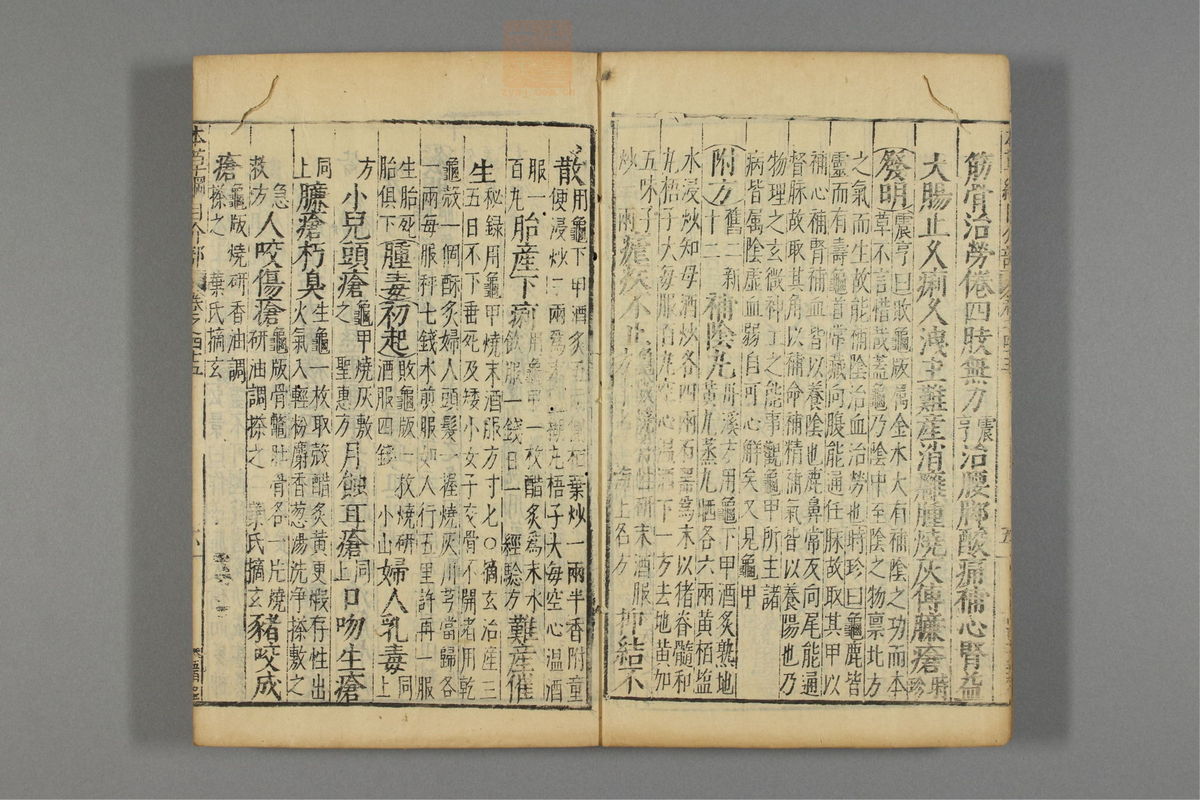 筋骨治勞倦四肢無力震亨治腰脚酸痛補心腎益
大腸止久痢久洩主難産消癰腫燒灰傅臁瘡時珍
發明震亨曰敗龜版屬金水大有補陰之功而本
草不言惜哉蓋龜乃陰中至陰之物禀北方
之氣而生故能補陰治血治勞也時珍曰龜鹿皆
靈而有壽龜首常藏向腹能通任脉故取其甲以
補心補腎補血皆以養陰也鹿鼻常反向尾能通
督脉故取其角以補命補精補氣皆以養陽也乃
物理之玄微神工之能事觀龜甲所主諸
病皆屬陰虛血弱自可心解矣又見鼈甲
附方舊二新十二補陰丸丹溪方用龜下甲酒炙熟地
黃九蒸九晒各六兩黃栢塩
水浸炒知母酒炒各四兩石器爲末以猪脊髓和
丸梧子大每服百丸空心温酒下一方去地黃加
五味子炒一兩瘧疾不止 燒存性研末酒服 海上名方抑結不
散用龜下甲酒炙五 葉炒一兩半香附童
便浸炒三兩爲末 梧子大每空心温酒
服一百丸胎産下痢用龜甲一枚醋炙爲末米
飲服一錢日二 經驗方難産催
生秘録用龜甲燒末酒服方寸匕〇摘玄治産三
五日不下垂死及矮小女子交骨不開者用乾
龜殻一個酥炙婦人頭髮一握燒灰川芎當歸各
一兩每服秤七錢水煎服如人行五里許再一服
生胎死胎俱下腫毒初起敗龜版一枚燒研
酒服四錢 小山婦人乳毒同上
方小兒頭瘡龜甲燒灰敷之 聖惠方月蝕耳瘡同上口吻生瘡
同上臁瘡朽臭生龜一枚取殻醋炙黃更煅存性出
火氣入輕粉麝香葱湯洗净搽敷之
急救方人咬傷瘡龜版骨鼈肚骨各一片燒
研油調搽之 葉氏摘玄豬咬成
瘡龜版燒研香油調
搽之 葉氏摘玄